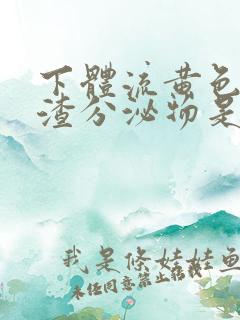 下體流黃色
渣分泌物是
我是條娃娃魚
未經同意禁止轉載